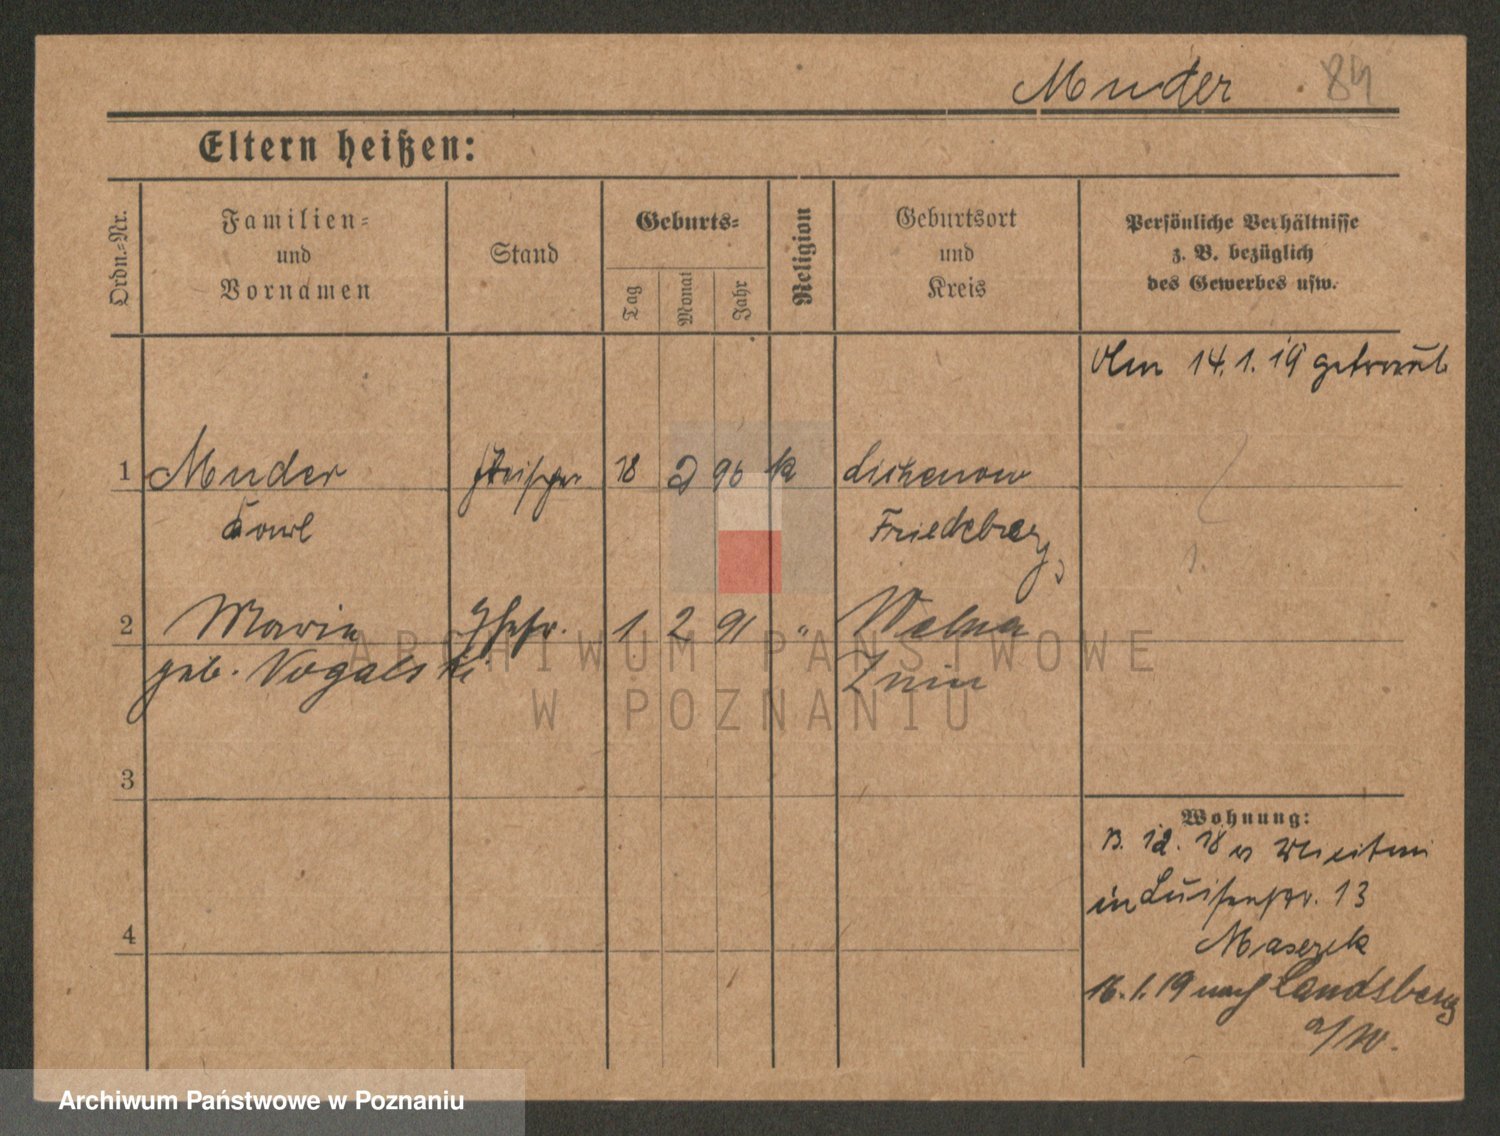 Muder 84
Eltern heißen:
Ordn.-Nr.
Familien-
und
Vornamen
Stand
Geburts-
Tag
Monat
Jahr
Religion
Geburtsort
und
Kreis
Persönliche Verhältnisse
z. B. bezüglich
des Gewerbes usw.
Am 14.1.19 getraut
1 Muder 18 2 96 k
Karl Friedeberg
2 Maria Ehefr. 1 2 91 " Welna
geb. Nogalski Znin
3
4
Wohnung:
3. 12. 18
in Luisenstr. 13
16.1.19 nach Landsberg
a/W.
ARCHIWUM PAŃSTWOWE
W POZNANIU
Archiwum Państwowe w Poznaniu